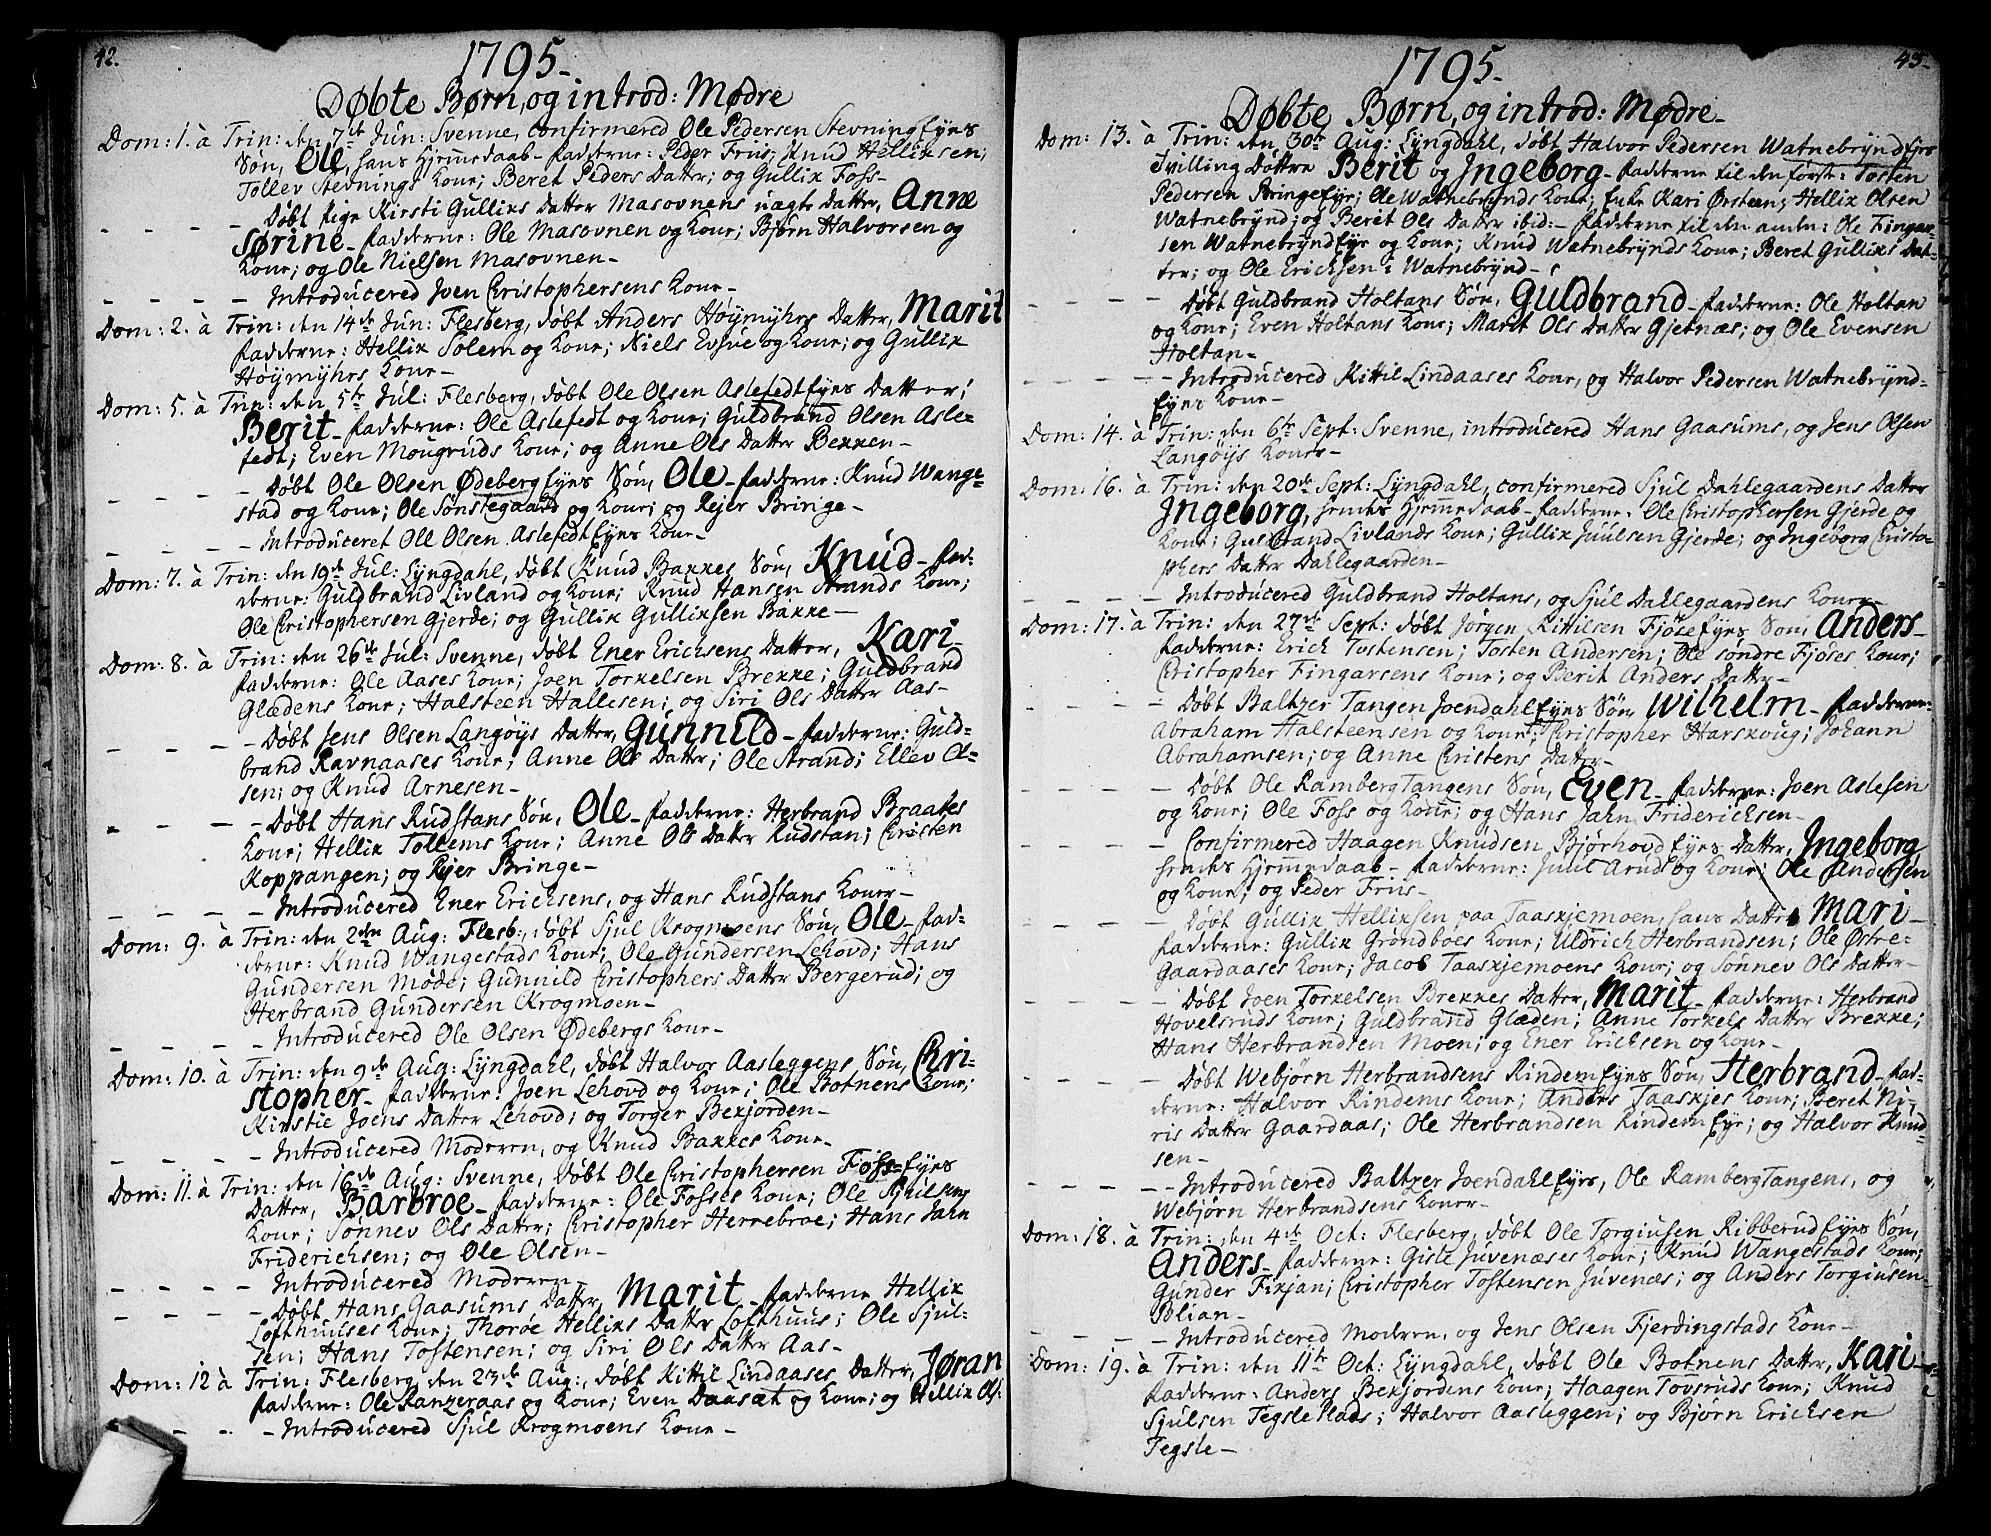 42.
1795.
Døbte Børn, og introd: Mødre
Dom: 1. à Trin: den 7de Jun: Svenne, confirmered Ole Pedersen Stevningsejers
Søn, Ole, hans Hjemmedaab - fadderne: Peder Friis; Knud Hellixsen;
Tollev Stevnings Kone; Beret Peders Datter; og Gullix Foss -
- - - - Døbt Pige Kirsti Gullixs Datter Masovnens uægte Datter, Anne
Sørine - fadderne: Ole Masovnen og Kone; Bjørn Halvorsen og
Kone; og Ole Nielsen Masovnen -
- - - - Introducered Joen Christophersens Kone -
Dom: 2. à Trin: den 14de Jun: Flesberg, døbt Anders Høymyhrs Datter, Marit
fadderne: Hellix Solem og Kone; Niels Evjue og Kone; og Gullix
Høymyhrs Kone -
Dom: 5. à Trin: den 5te Jul: Flesberg, døbt Ole Olsen Aslefedtejers Datter,
Berit - fadderne: Ole Aslefedt og Kone; Guldbrand Olsen Asle=
fedt; Even Mougruds Kone; og Anne Ols Datter Bekken -
- - - - Døbt Ole Olsen Ødebergejers Søn, Ole - fadderne: Knud Wange=
stad og Kone; Ole Sønstegaard og Kone; og Rejer Bringe -
- - - - Introduceret Ole Olsen Aslefedtejers Kone -
Dom: 7. à Trin: den 19de Jul: Lyngdahl, døbt Knud Bakkes Søn, Knud - fad=
derne: Guldbrand Livland og Kone; Knud Hansen Strands Kone;
Ole Christophersen Gjerde; og Gullix Gullixsen Bakke -
Dom: 8. à Trin: den 26de Jul: Svenne, døbt Ener Erichsens Datter, Kari -
fadderne: Ole Aases Kone; Joen Torkelsen Brekke; Guldbrand
Glædens Kone; Halsteen Hallesen; og Siri Ols Datter Aas -
- - - - Døbt Jens Olsen Langøys Datter, Gunnild - fadderne: Guld=
brand Ravnaases Kone; Anne Ols Datter; Ole Strand; Ellev Ol=
sen; og Knud Arnesen -
- - - - Døbt Hans Rudstans Søn, Ole - fadderne: Herbrand Braates
Kone; Hellix Tollems Kone; Anne Ols Datter Rudstan; Christen
Koppangen; og Rejer Bringe -
- - - - Introducered Ener Erichsens, og Hans Rudstans Koner -
Dom: 9. à Trin: den 2den Aug: Flesb:, døbt Sjul Krogmoens Søn, Ole - fad=
derne: Knud Wangestads Kone; Ole Gundersen Lehovd; Hans
Gundersen Møde; Gunnild Christophers Datter Bergerud; og
Herbrand Gundersen Krogmoen -
- - - - Introducered Ole Olsen Ødebergs Kone -
Dom: 10. à Trin: den 9de Aug: Lyngdahl, døbt Halvor Aasleggens Søn, Chri=
stopher - fadderne: Joen Lehovd og Kone; Ole Botnens Kone;
Kirstie Joens Datter Lehovd; og Torger Bekjorden -
- - - - Introducered Moderen, og Knud Bakkes Kone -
Dom: 11. à Trin: den 16de Aug: Svenne, døbt Ole Christophersen Foss=ejers
Datter, Barbroe - fadderne: Ole Fosses Kone; Ole
Kone; Sønnev Ols Datter; Christopher Herrebroe; Hans Jahn
Friderichsen; og Ole Olsen -
- - - - Introducered Moderen -
- - - - Døbt Hans Gaasums Datter, Marit - fadderne Hellix
Lofthuuses Kone; Thoroe Hellixs Datter Lofthuus; Ole Sjul=
sen; Hans Tostensen; og Siri Ols Datter Aas -
Dom: 12 à Trin: Flesberg, den 23de Aug:, døbt Kittil Lindaases Datter, Jøran
fadderne: Ole Ranzeraas og Kone; Even Daasæt og Kone; og Hellix Ols:
- - - Introducered Sjul Krogmoens Kone -
43.
1795.
Døbte Børn, og introd: Mødre -
Dom: 13. à Trin: den 30te Aug: Lyngdahl, døbt Halvor Pedersen Watnebryndejers
Tvilling Døttre Berit og Ingeborg - fadderne til den første: Tosten
Pedersen Bringeejer; Ole Watnebrynds Kone; Enke Kari Ørsteen; Hellix Olsen
Watnebrynd; og Beret Ols Datter ibid: - fadderne til den anden: Ole Fingar=
sen Watnebryndejer og Kone; Knud Watnebrynds Kone; Beret Gullixs Dat=
ter; og Ole Erichsen i Watnebrynd -
- - - - Døbt Guldbrand Holtans Søn, Guldbrand - fadderne: Ole Holtan
og Kone; Even Holtans Kone; Marit Ols Datter Gjetnæs; og Ole Evensen
Holtan -
- - - - Introducered Kittil Lindaases Kone, og Halvor Pedersen Watnebrynd=
ejers Kone -
Dom: 14. à Trin: den 6te Sept: Svenne, introducered Hans Gaasums, og Jens Olsen
Langøys Koner -
Dom: 16. à Trin: den 20de Sept: Lyngdahl, confirmered Sjul Dahlegaardens Datter
Ingeborg, hendes Hjemmedaab - fadderne: Ole Christophersen Gjerde og
Kone; Guldbrand Livlands Kone; Gullix Juulsen Gjerde; og Ingeborg Christo=
phers Datter Dahlegaarden -
- - - - Introducered Guldbrand Holtans, og Sjul Dahlegaardens Koner -
Dom: 17. à Trin: den 27de Sept: døbt Jørgen Kittilsen Fjøseejers Søn, Anders -
fadderne: Erich Tostensen; Tosten Andersen; Ole søndre Fjøses Kone;
Christopher Fingarsens Kone; og Berit Anders Datter -
- - - - Døbt Baltzer Tangen Joendahlejers Søn, Wilhelm - fadderne:
Abraham Halsteensen og Kone; Christopher Harskoug; Johann
Abrahamsen; og Anne Christens Datter -
- - - - Døbt Ole RambergTangens Søn, Even - fadderne: Joen Aslesen
og Kone; Ole Foss og Kone; og Hans Jahn Friderichsen -
- - - - Confirmered Haagen Knudsen Bjørhovdejers Datter, Ingeborg,
hendes Hjemmedaab - fadderne: Juul Arud og Kone; Ole Andersen
og Kone; og Peder Friis -
- - - - Døbt Gullix Hellixsen paa Taaskjemoen, hans Datter Mari -
fadderne: Gullix Grøndboes Kone; Uldrich Herbrandsen; Ole Østre=
Gaardaases Kone; Jacob Taaskjemoens Kone; og Sønnev Ols Datter -
- - - - Døbt Joen Torkelsen Brekkes Datter, Marit - fadderne: Herbrand
Hovelsruds Kone; Guldbrand Glæden; Anne Torkels Datter Brekke;
Hans Herbrandsen Moen; og Ener Erichsen og Kone -
- - - - Døbt Webjørn Herbrandsens Rindemejers Søn, Herbrand - fad=
derne: Halvor Rindems Kone; Anders Taaskjes Kone; Beret Ni=
ris Datter Gaardaas; Ole Herbrandsen Rindemejer; og Halvor Knud=
sen -
- - - - Introducered Baltzer Joendahlejers, Ole RambergTangens, og
Webjørn Herbrandsens Koner -
Dom: 18. à Trin: den 4de Oct: Flesberg, døbt Ole Torgiusen Ribberudejers Søn,
Anders - fadderne: Gisle Juvenæses Kone; Knud Wangestads Kone;
Gunder Fixjan; Christopher Tostensen Juvenæs; og Anders Torgiusen
Blian -
- - - - Introducered Moderen, og Jens Olsen Fjerdingstads Kone -
Dom: 19. à Trin: den 11te Oct: Lyngdahl, døbt Ole Botnens Datter, Kari -
fadderne: Anders Bekjordens Kone; Haagen Tovsruds Kone; Knud
Sjulsen Tegsle Plads; Halvor Aasleggen; og Bjørn Erichsen
Tegsle -